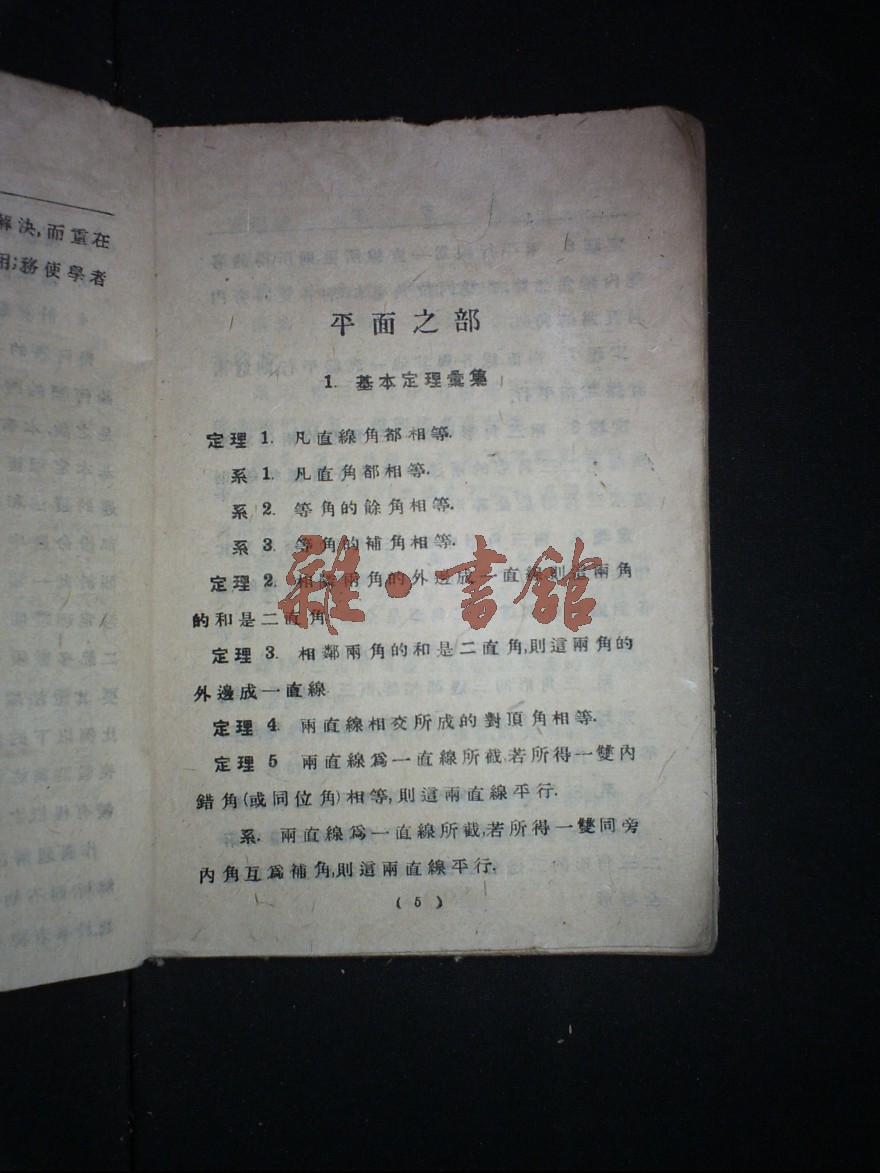 解決,而重在
用;務使學者
平面之部
1. 基本定理彙集
定理 1. 凡直線角都相等.
系 1. 凡直角都相等.
系 2. 等角的餘角相等.
系 3. 等角的補角相等.
定理 2. 相鄰兩角的外邊成一直線,則這兩角
的和是二直角.
定理 3. 相鄰兩角的和是二直角,則這兩角的
外邊成一直線
定理 4. 兩直線相交所成的對頂角相等.
定理 5 兩直線爲一直線所截,若所得一雙內
錯角(或同位角)相等,則這兩直線平行.
系. 兩直線爲一直線所截,若所得一雙同旁
內角互爲補角,則這兩直線平行.
( 5 )
雜·書館